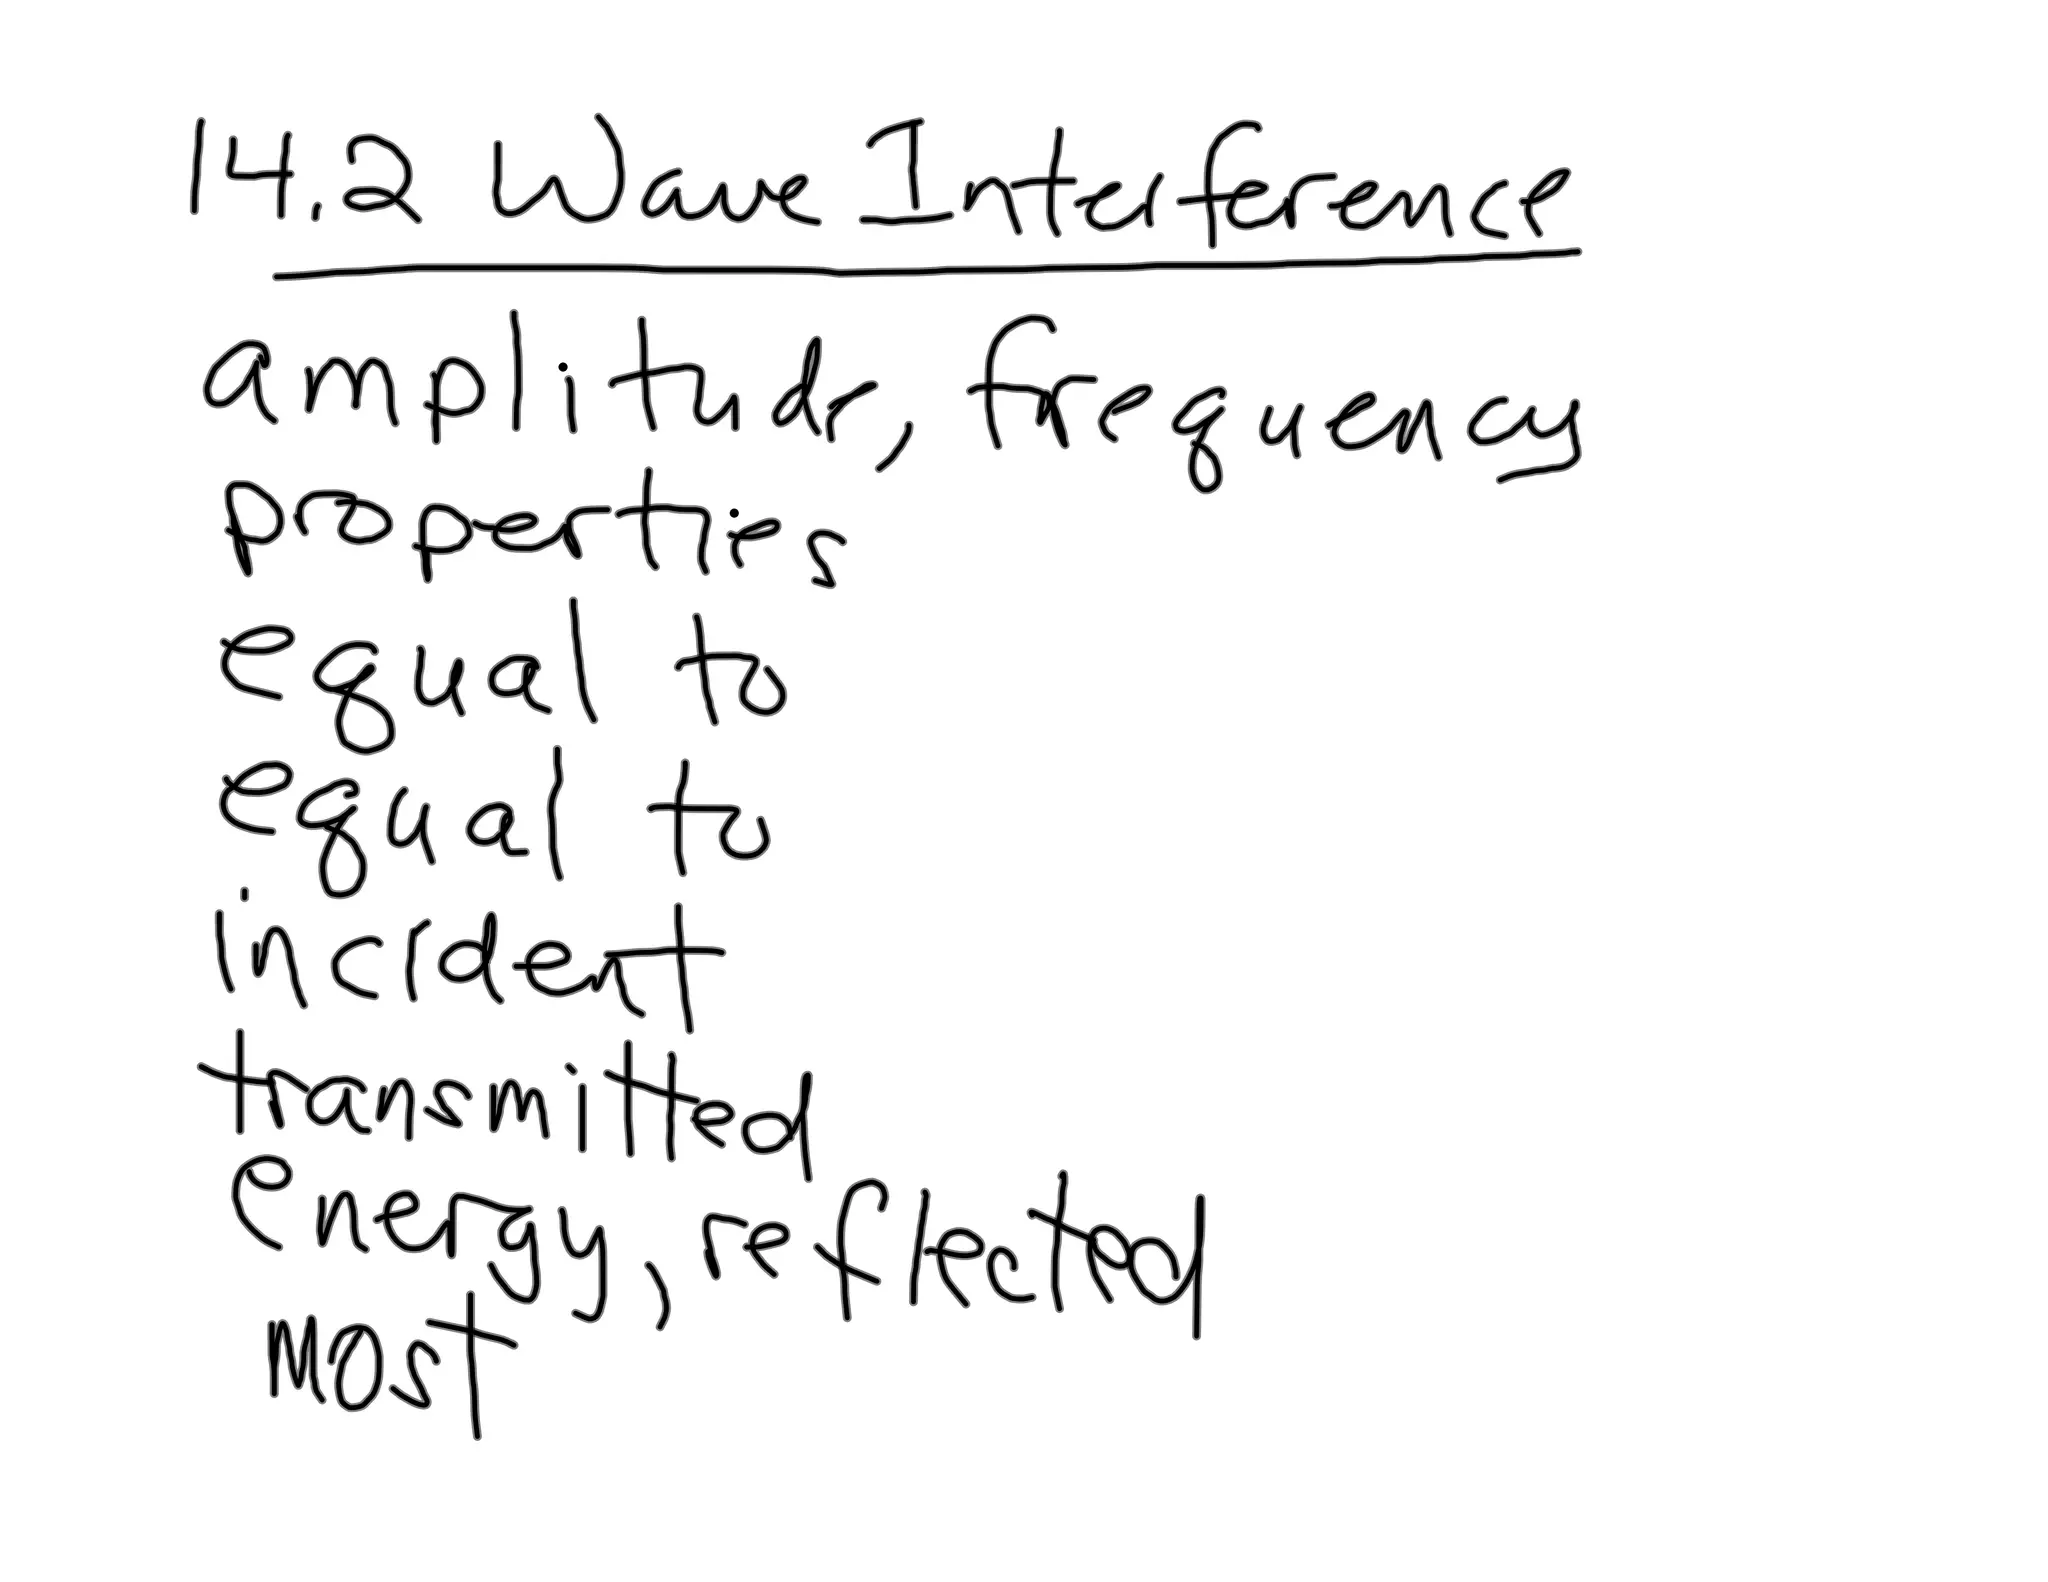 14.2 Wave Interference
amplitude, frequency
properties
equal to
equal to
incident
transmitted
energy, reflected
most